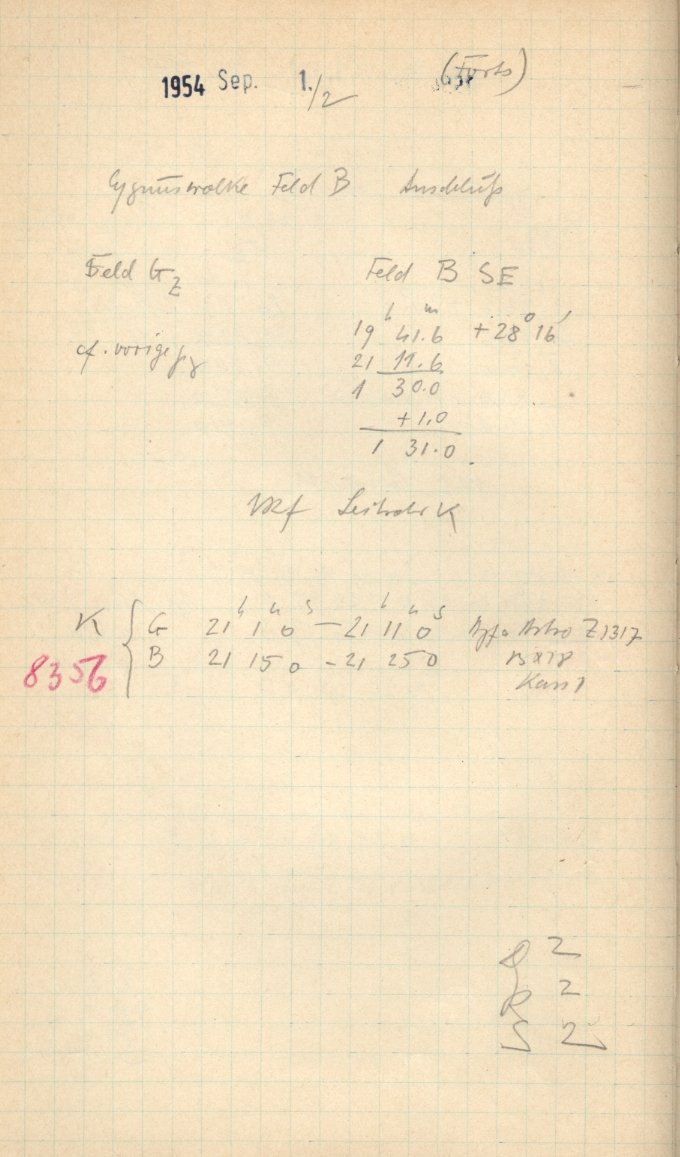 1954 Sep. 1./2 (Forts)
Cygnuswolke Feld B Anschluß
Feld G Z
Feld B SE
19 h 41.6 m +28° 16'
cf. vorige
21 11.6
1 30.0
+1.0
1 31.0
Leitrohr K
K { G 21 h 1 m 0 s — 21 h 11 m 0 s Agfa Astro Z 1317
8356 B 21 15 0 - 21 25 0
Kass 1
2
R 2
S 2